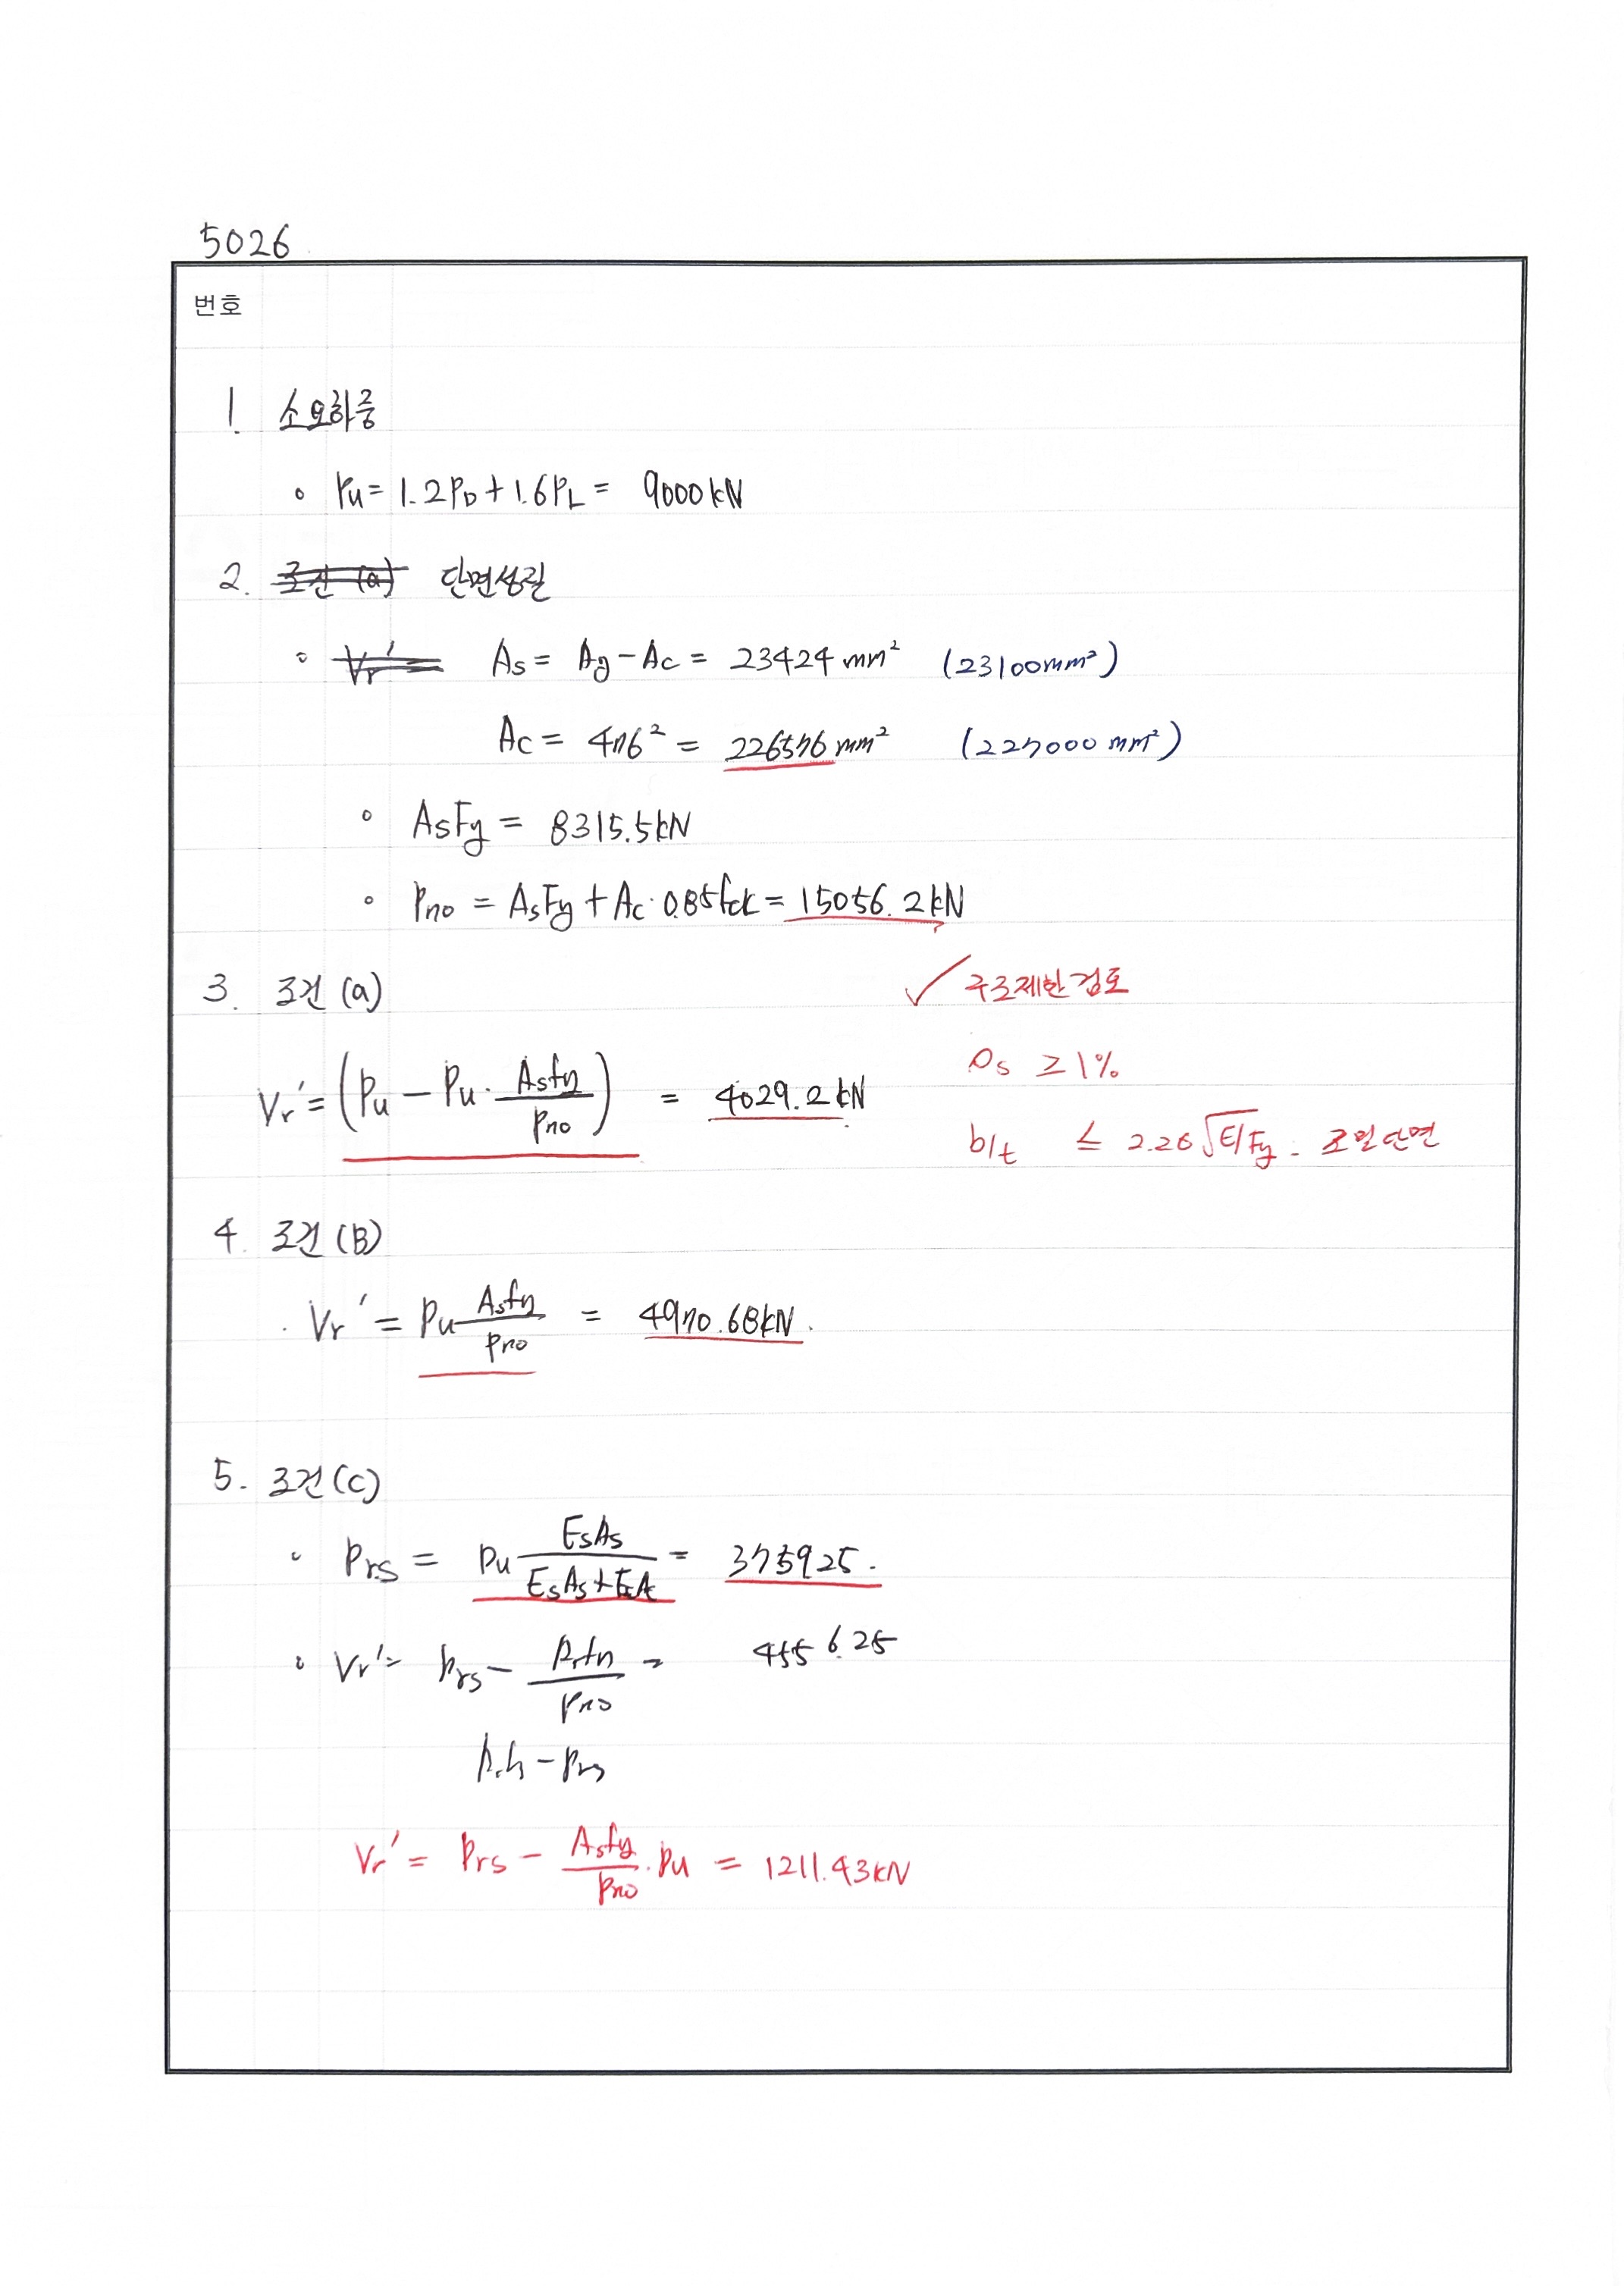 5026
번호
1. 소요하중
∘ Pu = 1.2PD + 1.6PL = 9000kN
2. 조건(a) 단면성질
∘ Vr' = As = Ag - Ac = 23424 mm² (23100mm²)
Ac = 476² = 226576 mm² (227000 mm²)
∘ AsFy = 8315.5kN
∘ Pno = AsFy + Ac·0.85fck = 15056.2kN
3. 조건(a) ✓ 구조제한검토
ρs ≥ 1%
Vr' = (Pu - Pu·Asfy/Pno) = 4029.2kN
b/t ≤ 2.26√E/Fy. 조밀단면
4. 조건(B)
Vr' = Pu Asfy/Pno = 4970.68kN.
5. 조건(C)
∘ Prs = Pu EsAs/EsAs+EcAc = 3759.25.
∘ Vr' = Prs - /Pno = 4556.25
- Prs
Vr' = Prs - Asfy/Pno·Pu = 1211.43kN